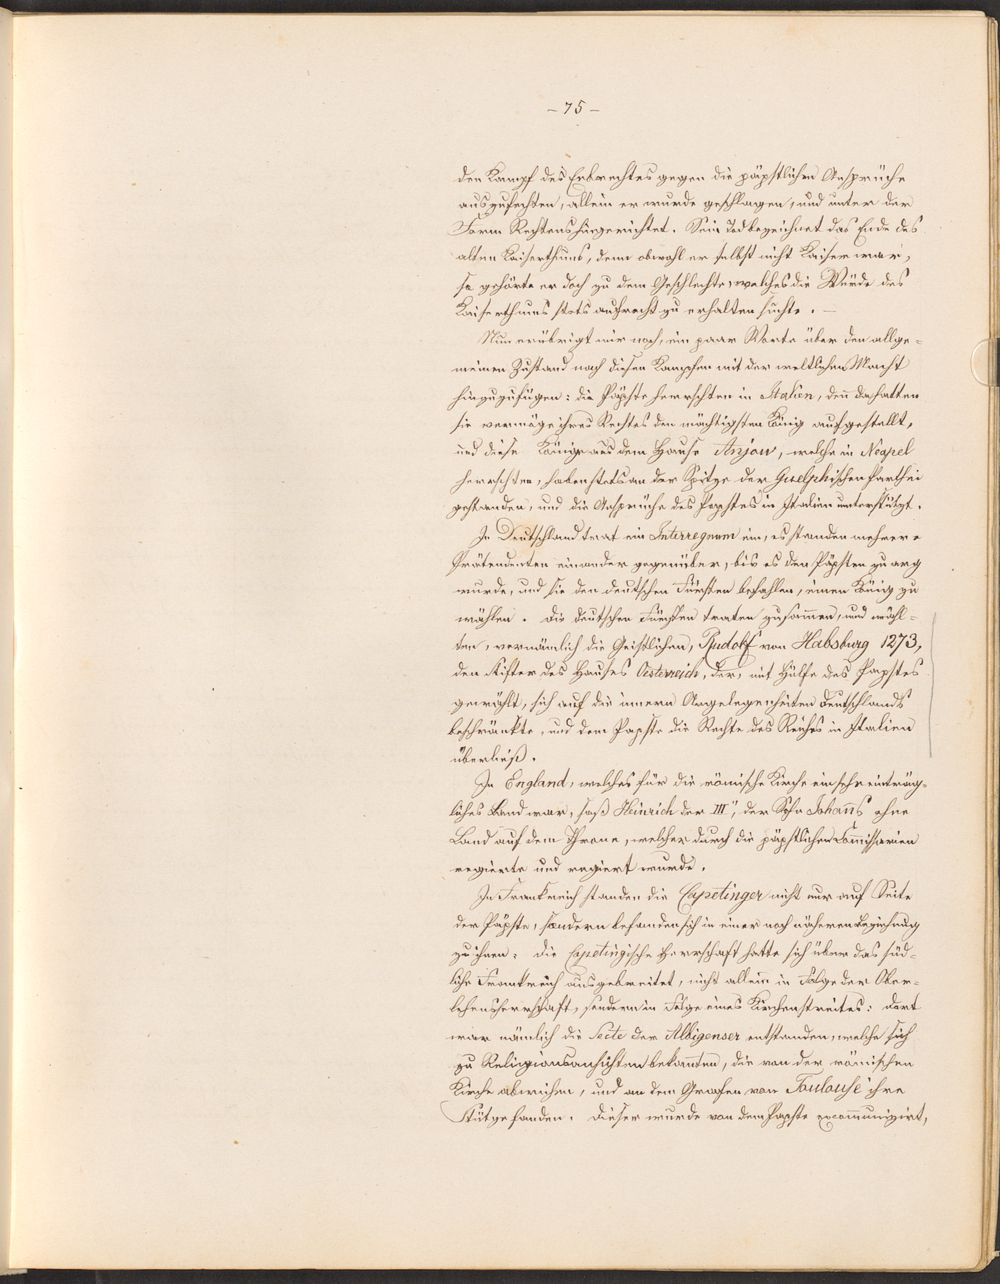 – 75 –
den Kampf des Erbrechtes gegen die päpstlichen Ansprüche
auszufechten, allein er wurde geschlagen, und unter der
Form Rechtens hingerichtet. Sein Tod bezeichnet das Ende des
alten Kaiserthums, denn obwohl er selbst nicht Kaiser war,
so gehörte er doch zu dem Geschlechte, welches die Würde des
Kaiserthums stets aufrecht zu erhalten suchte. —
Nun erübrigt mir noch, ein paar Worte über den allge=
meinen Zustand nach diesen Kämpfen mit der weltlichen Macht
hinzuzufügen: die Päpste herrschten in Italien, deñ da hatten
sie vermöge ihres Rechtes den mächtigsten König aufgestellt,
und diese Könige aus dem Hause Anjou, welche in Neapel
herrschten, haben stets an der Spitze der Guelphischen Parthei
gestanden, und die Ansprüche des Papstes in Italien unterstützt.
In Deutschland trat ein Interregnum ein, es standen mehrere
Prätendenten einander gegenüber, bis es den Päpsten zu arg
wurde, und sie den deutschen Fürsten befahlen, einen König zu
wählen. Die deutschen Fürsten traten zusam̄en, und wähl=
ten, vornämlich die Geistlichen, Rudolf von Habsburg 1273,
den Stifter des Hauses Oesterreich, der, mit Hülfe des Papstes
gewählt, sich auf die innern Angelegenheiten Deutschlands
beschränkte, und dem Papste die Rechte des Reiches in Italien
überließ.
In England, welches für die römische Kirche ein sehr einträg=
liches Land war, saß Heinrich der III, der Sohn Johañs ohne
Land auf dem Throne, welcher durch die päpstlichen Com̄issarien
regierte und regiert wurde.
In Frankreich standen die Capetinger nicht nur auf Seite
der Päpste, sondern befanden sich in einer noch näheren Beziehung
zu ihnen: die capetingische Herrschaft hatte sich über das süd=
liche Frankreich ausgebreitet, nicht allein in Folge der Ober=
lehensherrschaft, sondern in Folge eines Kirchenstreites: dort
war nämlich die Secte der Albigenser entstanden, welche sich
zu Religionsansichten bekañten, die von der römischen
Kirche abwichen, und an dem Grafen von Toulouse ihre
Stütze fanden. Dieser wurde von dem Papste excom̄unizirt,